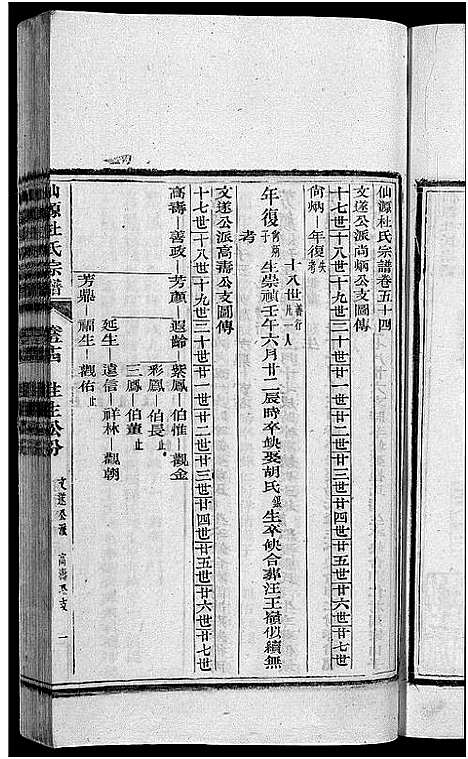 仙源杜氏宗譜卷五十四
文遂公派尚炳公支圖傳
十七世十八世十九世三十世廿一世廿二世廿三世廿四世廿五世廿六世廿七世
尚炳─年復失考
十八世善行凡一人
年復尚炳子生崇禎壬午六月廿二辰時卒缺娶胡氏生卒缺合葬汪王嶺似續無
考
文遂公派高壽公支圖傳
十七世十八世十九世三十世廿一世廿二世廿三世廿四世廿五世廿六世廿七世
高壽─善政─芳顏─遐齡─紫鳳─伯惟─觀金
彩鳳─伯長止
三鳳─伯董止
延生─遣信─祥林─觀朝
芳鼎─福生─觀佑止
仙源杜氏宗譜
文遂公派 高壽公支 一